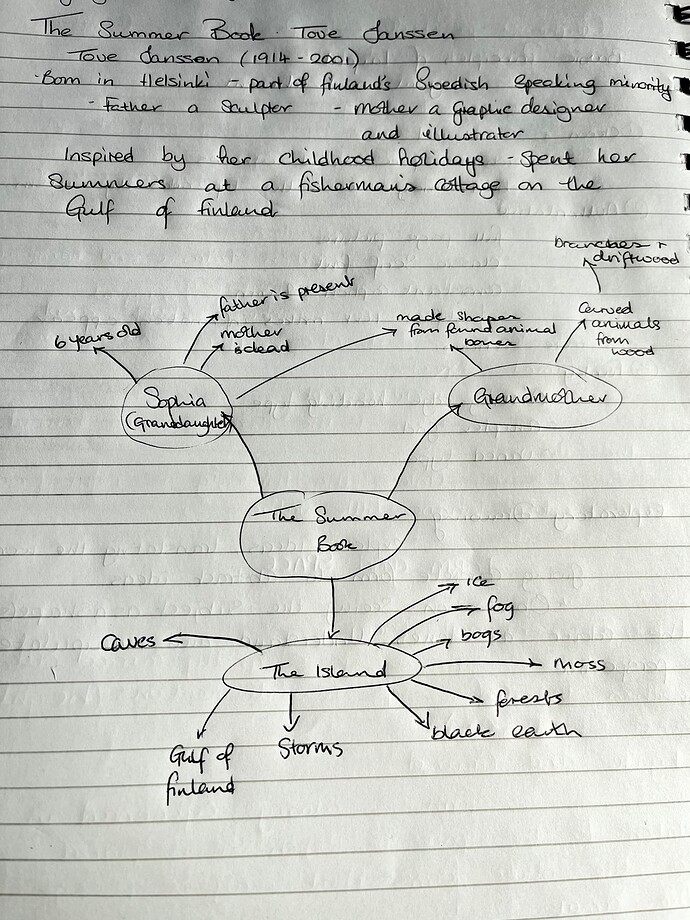 The Summer Book · Tove Janssen
Tove Janssen (1914 - 2001)
· Born in Helsinki - part of finland's Swedish speaking minority
- Father a sculptor - mother a graphic designer
and illustrator
Inspired by her childhood holidays - spent her
summers at a fisherman's cottage on the
Gulf of finland
branches +
driftwood
father is present
made shapes
from found animal
bones
Carved
animals
from
wood
6 years old
mother
is dead
Sophia
(Granddaughter)
Grandmother
The Summer
Book
ice
fog
bogs
Caves
moss
The Island
forests
black earth
Gulf of
finland
Storms